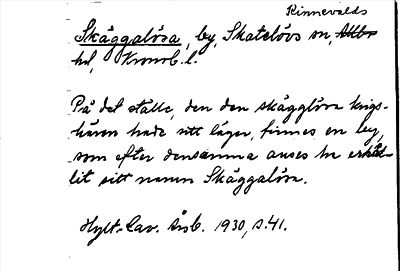 Rinnevalds
Skäggalösa, by, Skatelövs sn,
hd, Kronob. l.
På det ställe, den den skägglösa krigs-
hären hade sitt läger, finnes en by,
som efter densamma anses ha erhål-
lit sitt namn Skäggalösa.
Hylt.-Cav. Årsb. 1930, s. 41.